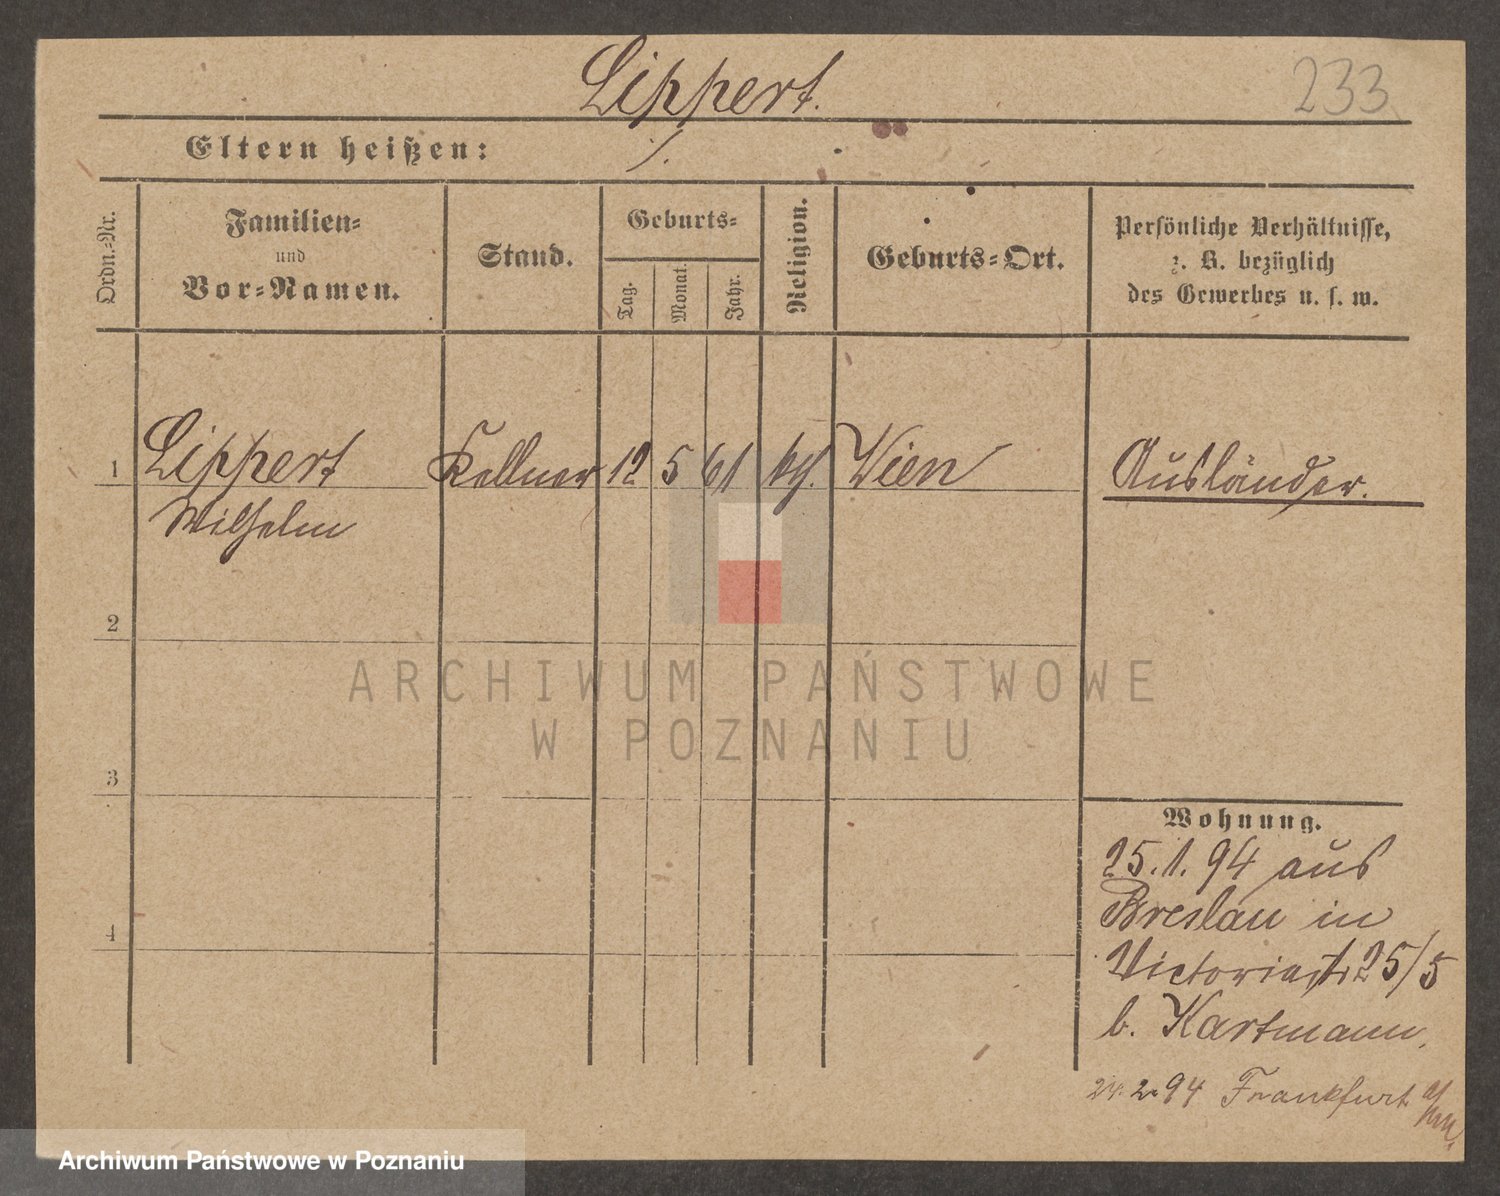 Lippert.
233
Eltern heißen: ./.
Ordn.-Nr.
Familien-
und
Vor-Namen.
Stand.
Geburts-
Tag.
Monat.
Jahr.
Religion.
Geburts-Ort.
Persönliche Verhältnisse,
z. B. bezüglich
des Gewerbes u. s. w.
1 Lippert Kellner 12 5 61 kth. Wien Ausländer.
Wilhelm
2
3
4
Wohnung.
25.1.94 aus
Breslau in
Victoriastr 25/5
b. Hartmann,
24.2.94 Frankfurt a/
ARCHIWUM PAŃSTWOWE
W POZNANIU
Archiwum Państwowe w Poznaniu